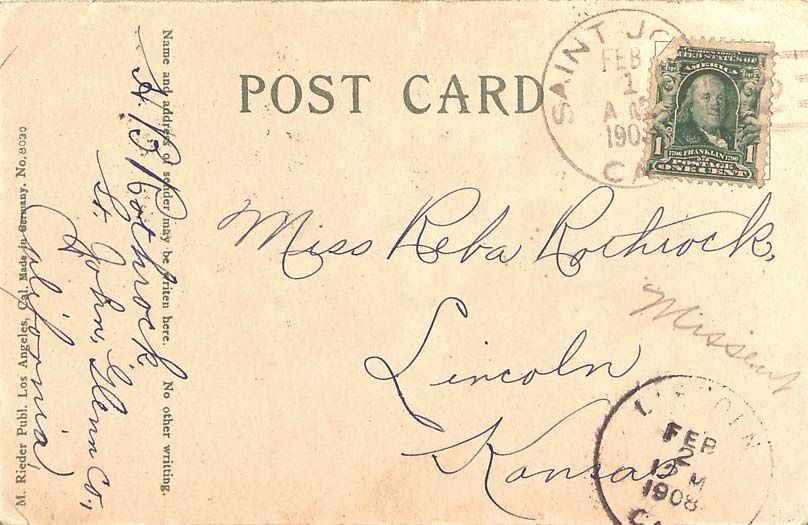 POST CARD
Miss Reba Rothrock,
Lincoln
Kansas
Missent
Name and address of sender may be writen here. No other writting.
A B Rothrock
St. John, Glenn Co.,
California,
M. Rieder Publ. Los Angeles, Cal. Made in Germany. No. 8030
SAINT JO
FEB
1
A M
190
CA
UNITED STATES OF
AMERICA
1 1706 FRANKLIN 1790 1
POSTAGE
ONE CENT
LINCOLN
FEB
2
M
1908
C